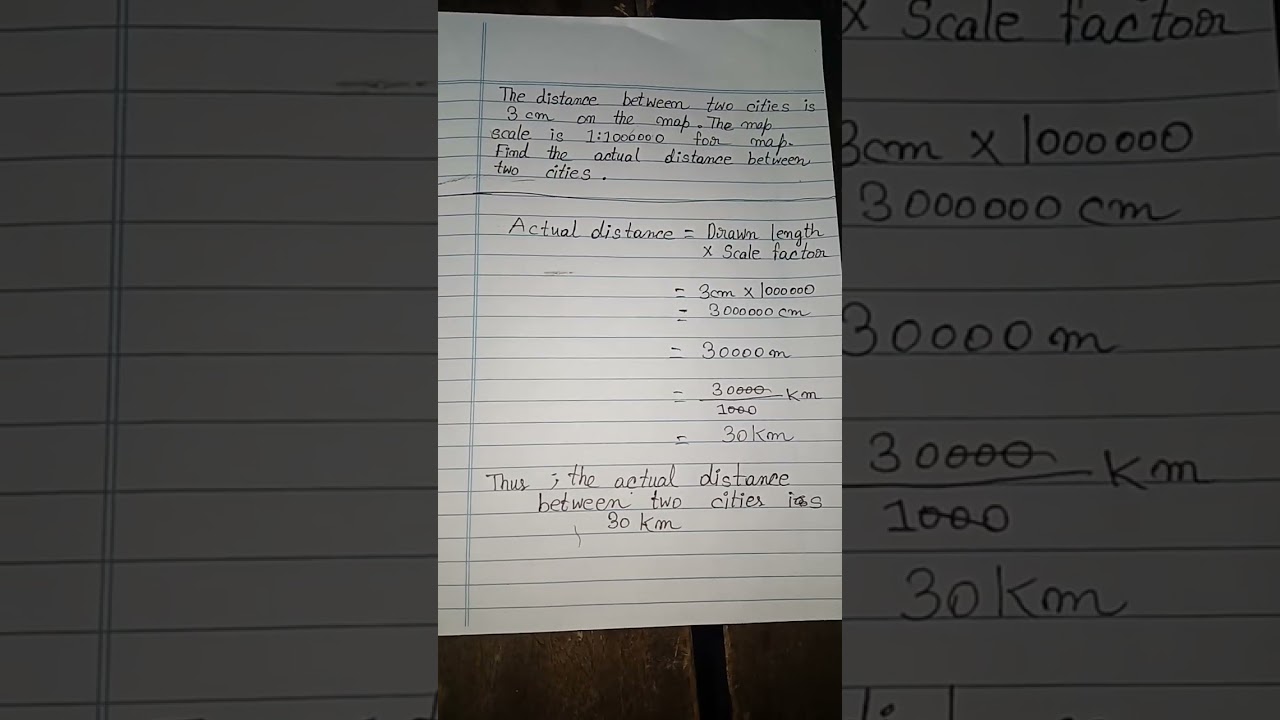 The distance between two cities is
3 cm on the map. The map
scale is 1:1000000 for map.
Find the actual distance between
two cities.
Actual distance = Drawn length
x Scale factor
= 3cm x 1000000
= 3000000 cm
= 30000 m
= 30000/1000 Km
= 30 Km
Thus ; the actual distance
between two cities is
30 Km
x Scale factor
3cm x 1000000
3000000 cm
30000 m
30000/1000 Km
30 Km